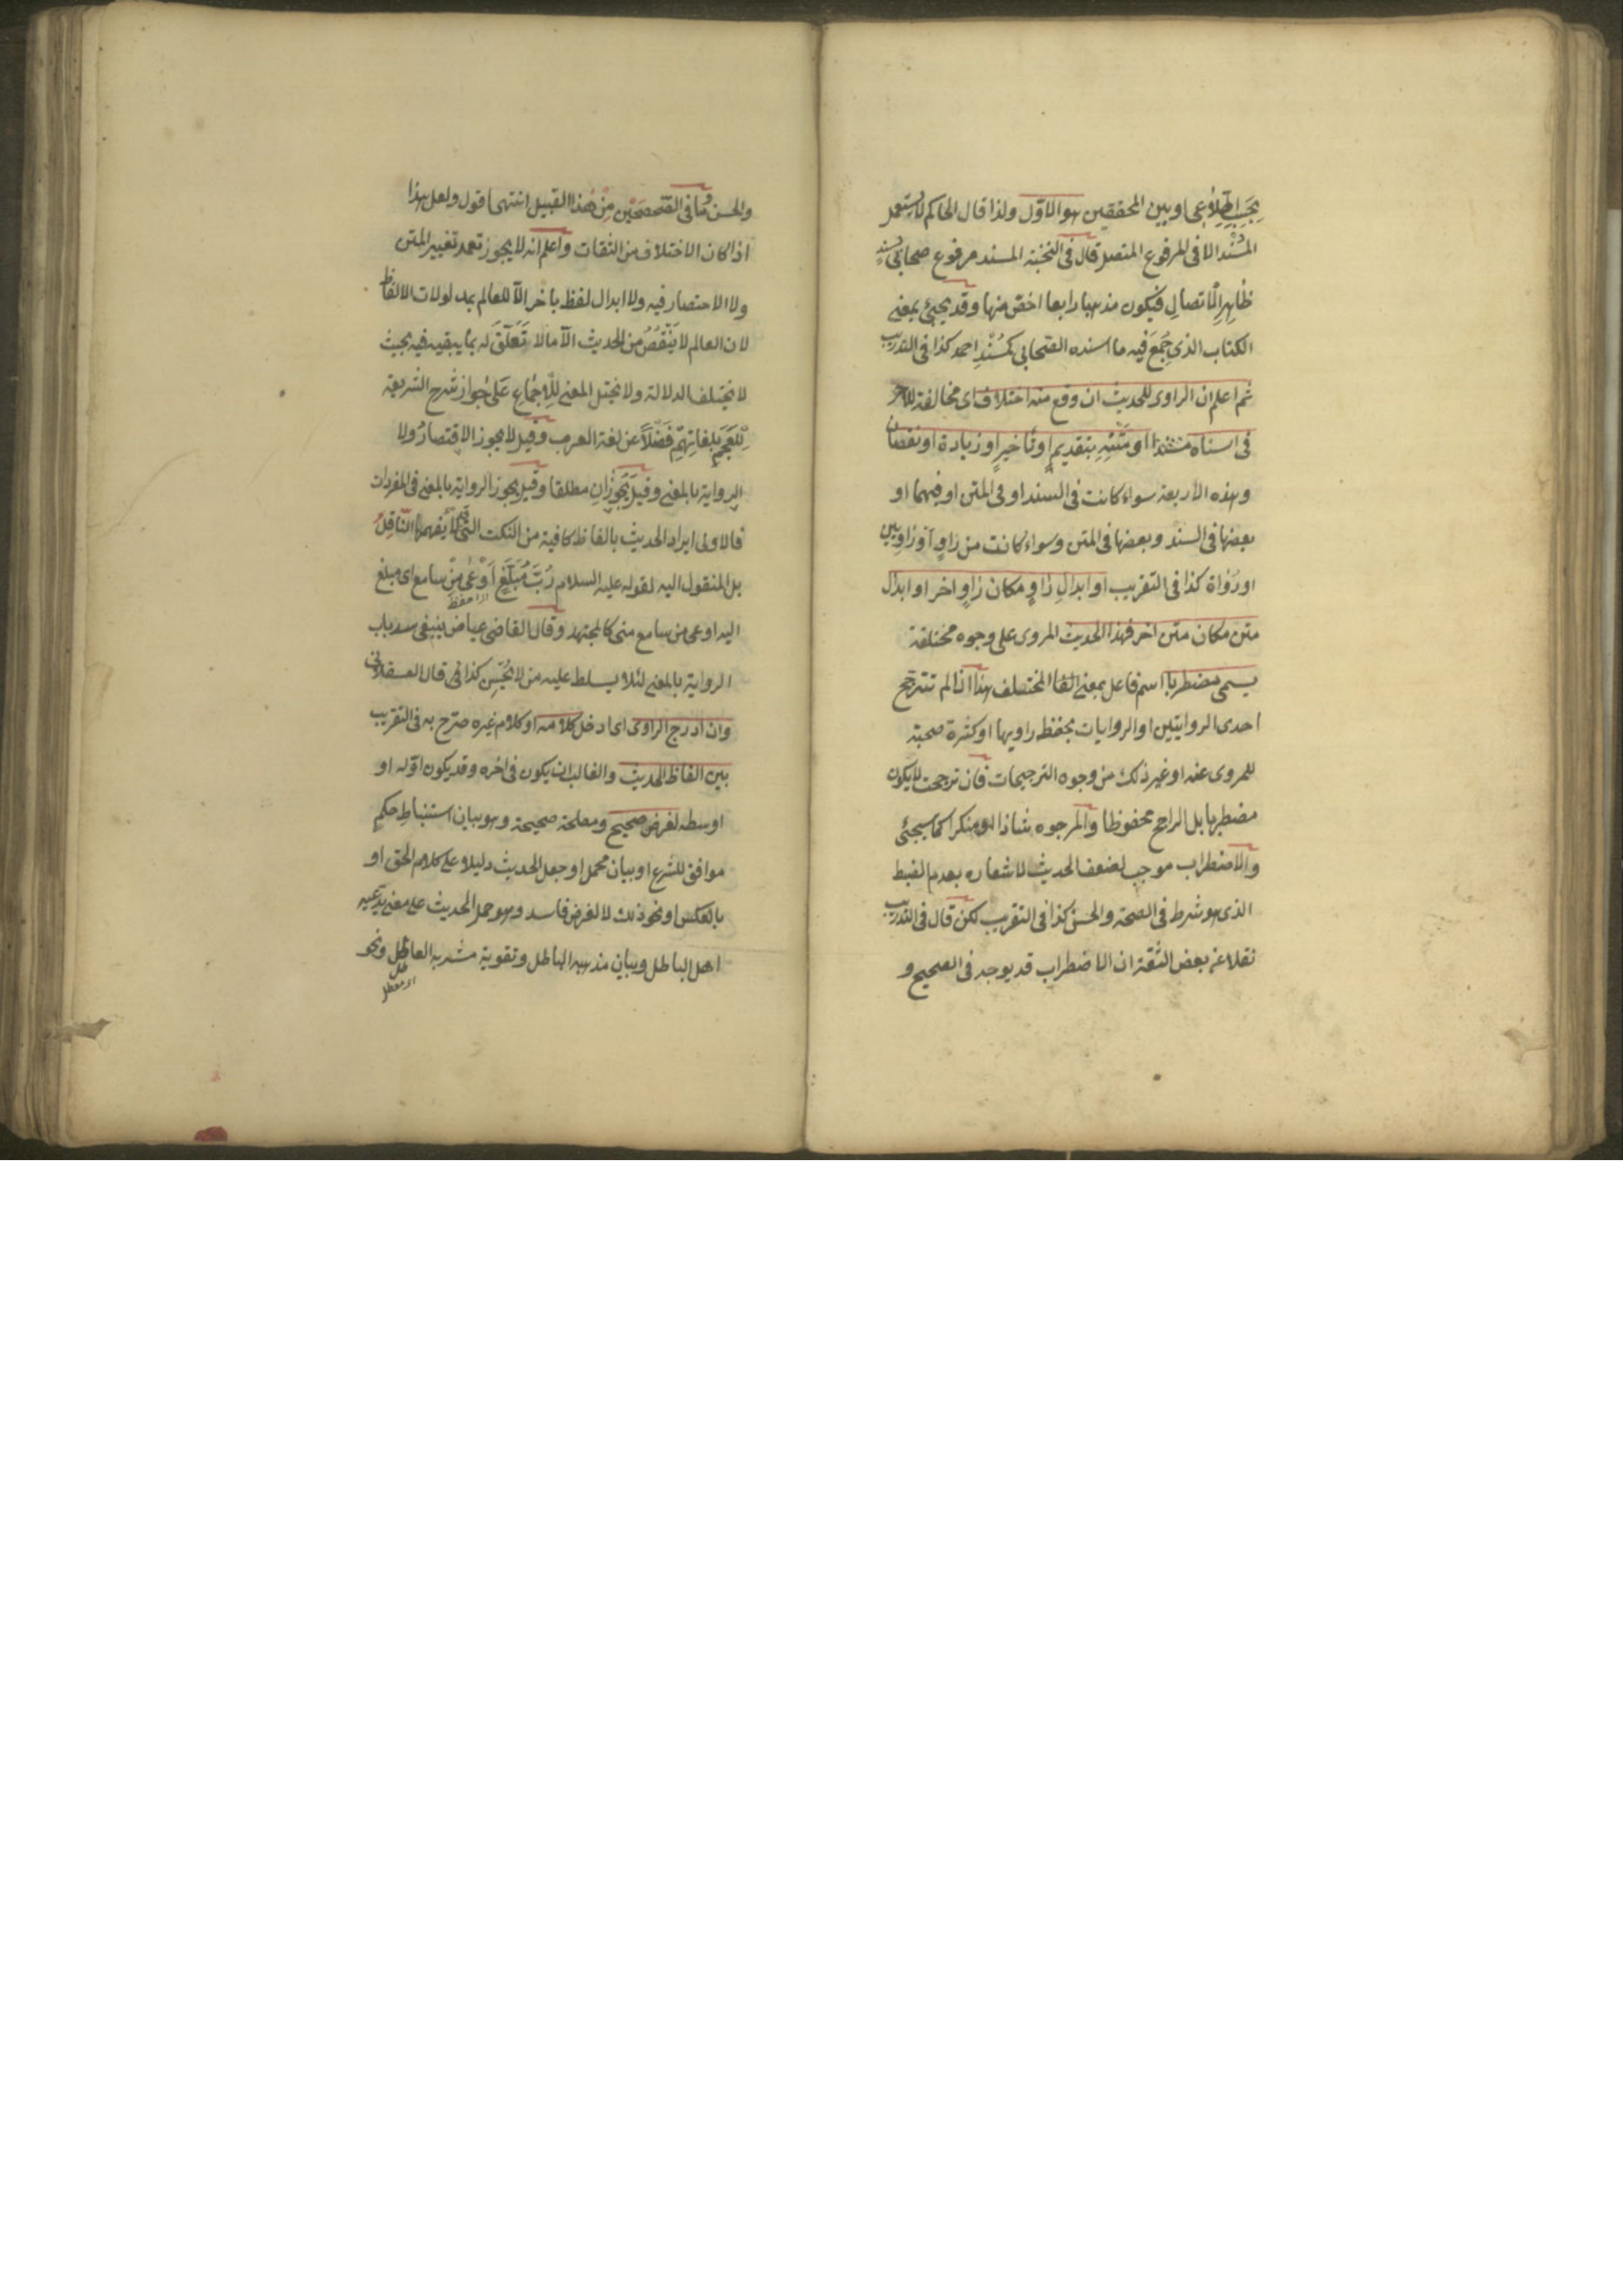 بحسب اطلاعى او بين المحققين هو الاول ولذا قال الحاكم لا يستعمل
المسند الا فى المرفوع المتصل قال فى النخبة المسند مرفوع صحابى بسند
ظاهره الاتصال فيكون مذهبا رابعا اخص منها وقد يجيئ بمعنى
الكتاب الذى جُمِعَ فيه ما اسنده الصحابى كمُسْنَدِ احمد كذا فى التدريب
ثم اعلم ان الراوى للحديث ان وقع منه اختلاف اى مخالفة للاخر
فى اسناده او مَتْنِهِ بتقديمٍ او تأخيرٍ او زيادة او نقصان
وهذه الاربعة سواء كانت فى السند او فى المتن او فيهما او
بعضها فى السند وبعضها فى المتن وسواء كانت من راوٍ او راويين
او رُواة كذا فى التقريب او ابدالِ راوٍ مكان راوٍ اخر او ابدال
متن مكان متن اخر فهذا الحديث المروى على وجوه مختلفة
يسمى مضطربا اسم فاعل بمعنى المختلف هذا اذا لم تترجح
احدى الروايتين او الروايات بحفظ راويها او كثرة صحبة
للمروى عنه او غير ذلك من وجوه الترجيحات فان ترجحت لا يكون
مضطربا بل الراجح محفوظا والمرجوه شاذا او منكرا كما سيجئى
والاضطراب موجب لضعف الحديث لاشعاره بعدم الضبط
الذى هو شرط فى الصحة والحسن كذا فى التقريب لكن قال فى التدريب
نقلا عن بعض الثقة ان الاضطراب قد يوجد فى الصحيح و
والحسن وما فى الصحيحين مِنْ هذا القبيل انتهى اقول ولعل هذا
اذا كان الاختلاف من الثقات واعلم انه لا يجوز تعمد تغيير المتن
ولا الاختصار فيه ولا ابدال لفظ باخر الّا للعالم بمدلولات الالفاظ
لان العالم لا يَنْقُصُ من الحديث الّا ما لا تَعَلُّقَ له بما يبقيه فيه بحيث
لا تختلف الدلالة ولا يختل المعنى لِلْاِجْماعِ عَلى جواز شرح الشريعة
لِلْعَجَمِ بلغاتِهِمْ فَضْلًا عن لغة العرب وقيل لا يجوز الاقتصار ولا
الرواية بالمعنى وقيل يَجُوزانِ مطلقا وقيل يجوز الرواية بالمعنى فى المفردات
فالاولى ايراد الحديث بالفاظ كافية من النكت التى لا يفهمها الناقل
بل المنقول اليه لقوله عليه السلام رُبَّ مُبَلَّغٍ اَوْعى مِنْ سامع اى مبلغ
اى احفظ
اليه اوعى من سامع منى كالمجتهد وقال القاضى عياض ينبغى سد باب
الرواية بالمعنى لئلا يسلط عليه من لا يُحْسِن كذا فى قال العسقلانى
وان ادرج الراوى اى ادخل كلامه او كلام غيره صرّح به فى التقريب
بين الفاظ الحديث والغالب ان يكون فى اخره وقد يكون اوّله او
اوسطه لغرض صحيح ومصلحة صحيحة وهو بيان استنباطِ حكمٍ
موافق للشرع او بيان محمل او جعل الحديث دليلا على كلام الحق او
بالعكس او نحو ذلك لا لغرض فاسد وهو حمل الحديث على معنى يدّعيه
اهل الباطل وبيان مذهبه الباطل وتقوية مشربه العاطل ونحو